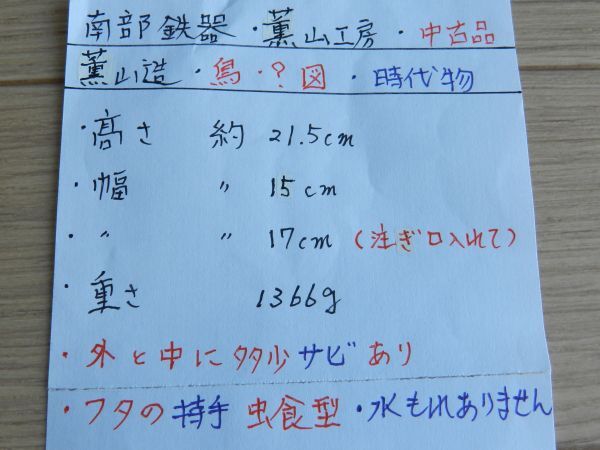 南部鉄器・薫山工房・中古品
薫山造・鳥・?図・時代物
・高さ 約 21.5cm
・幅 〃 15cm
・〃 〃 17cm (注ぎ口入れて)
・重さ 1366g
・外と中に多少サビあり
・フタの持手 虫食型・水もれありません